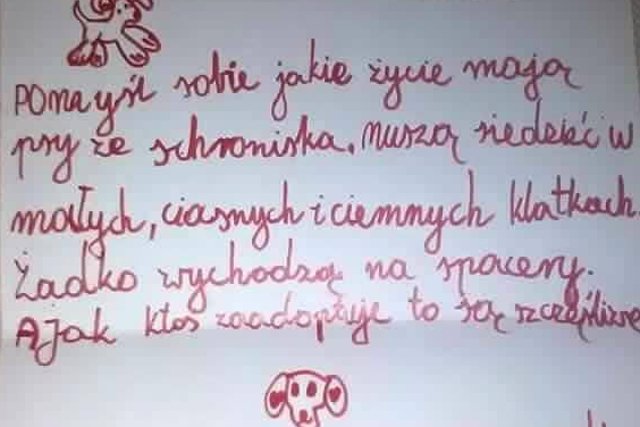 POMYŚL sobie jakie życie mają
psy ze schroniska. Muszą siedzieć w
małych, ciasnych i ciemnych klatkach
Żadko wychodzą na spacery.
A Jak ktoś zaadoptuje to są szczęśliwe